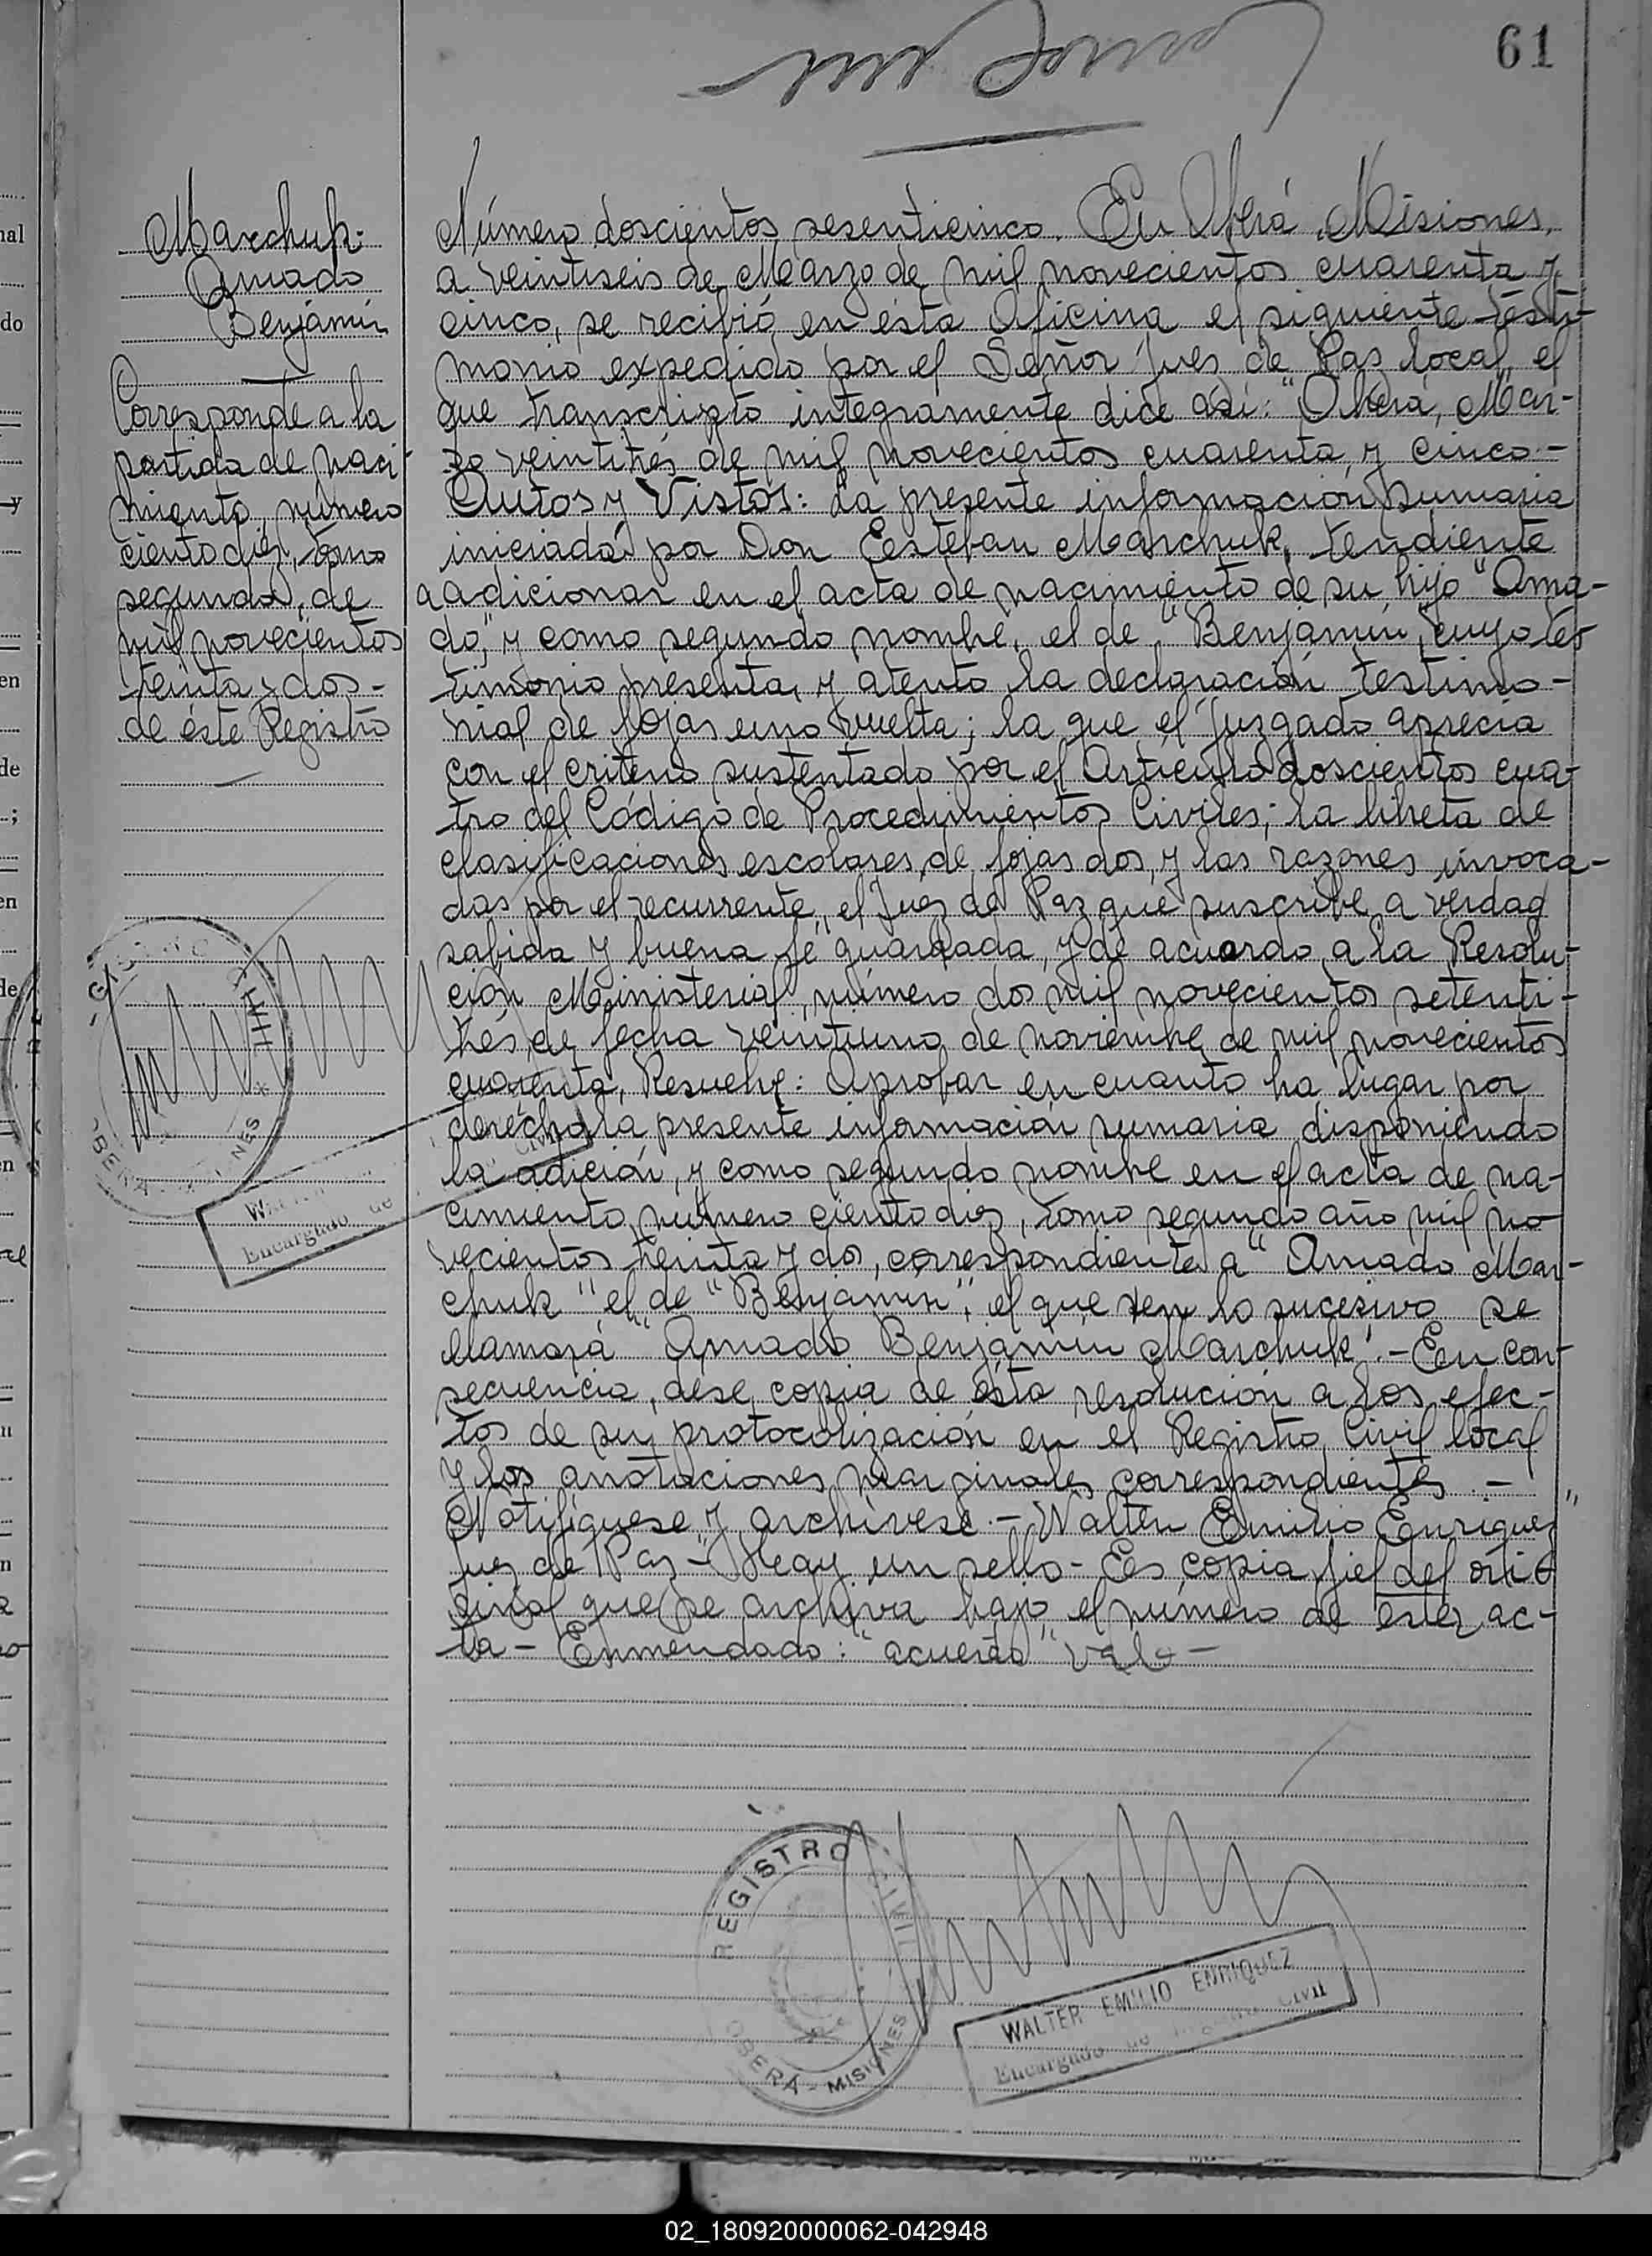 61
Marchuk
Amado
Benjamín
Corresponde a la
partida de naci-
miento, número
ciento diez, tomo
segundo, de
mil novecientos
treinta y dos -
de éste Registro
Número doscientos sesenticinco. En Oberá, Misiones,
a veintiseis de Marzo de mil novecientos cuarenta y
cinco, se recibió en ésta Oficina el siguiente testi-
monio expedido por el Señor Juez de Paz local, el
que transcripto integramente dice así: "Oberá, Mar-
zo veintitrés de mil novecientos cuarenta, y cinco.-
Autos y Vistos: La presente información sumaria
iniciada por Don Esteban Marchuk, tendiente
a adicionar en el acta de nacimiento de su hijo "Ama-
do," y como segundo nombre, el de "Benjamín", cuyo tes
timonio presenta, y atento la declaración testimo-
nial de fojas uno vuelta; la que el juzgado aprecia
con el criterio sustentado por el Artículo doscientos cua-
tro del Código de Procedimientos Civiles; la libreta de
clasificaciones escolares, de fojas dos, y las razones invoca-
das por el recurrente, el Juez de Paz que suscribe a verdad
sabida y buena fé guardada, y de acuerdo a la Resolu-
ción Ministerial, número dos mil novecientos setenti-
trés, de fecha veintiuno de noviembre de mil novecientos
cuarenta, Resuelve: Aprobar en cuanto ha lugar por
derecho la presente información sumaria disponiendo
la adición, y como segundo nombre en el acta de na-
cimiento, número ciento diez, tomo segundo año mil no
vecientos treinta y dos, correspondiente a "Amado Mar-
chuk" el de "Benjamín", el que en lo sucesivo se
llamará "Amado Benjamín Marchuk".- En con-
secuencia, dese copia de ésta resolución a los efec-
tos de su protocolización en el Registro Civil local
y las anotaciones marginales correspondientes.-
Notifíquese y archívese.- Walter Emilio Enriquez
juez de Paz-" Hay un sello- Es copia fiel del ori-
ginal que se archiva bajo el número de esta ac-
ta - Enmendado: "acuerdo" Vale -
REGISTRO CIVIL
OBERÁ - MISIONES
Encargado de
REGISTRO CIVIL
OBERÁ - MISIONES
WALTER EMILIO ENRIQUEZ
Encargado de Registro Civil
02_180920000062-042948